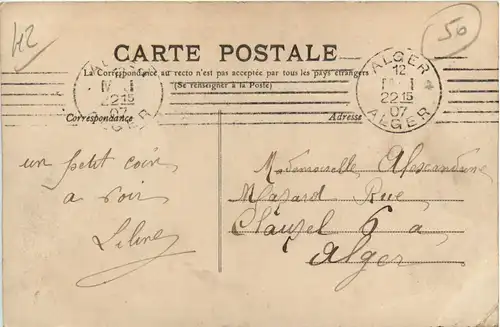 42
50
CARTE POSTALE
La Correspondance au recto n'est pas acceptée par tous les pays étrangers
(Se renseigner à la Poste)
Correspondance
Adresse
ALGER
22 15
07
ALGER
ALGER
12
22 15
07
ALGER
un petit coin
a voir
Liline
Mademoiselle Alexandrine
Mazard Rue
Clauzel 6 a
Alger